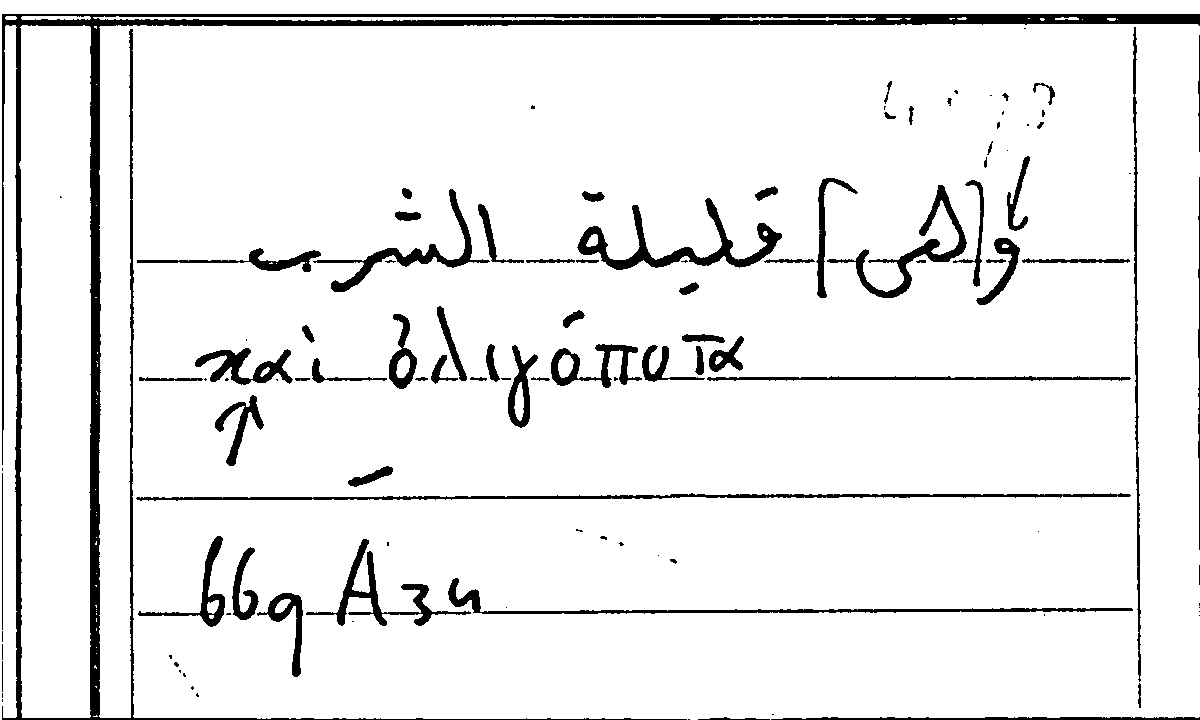 و[هى] قليلة الشرب
καὶ ὀλιγόποτα
669 A 34